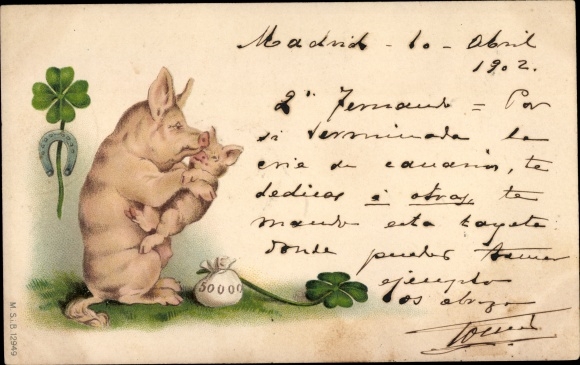 Madrid - 10 - Abril
1902.
Qdo Fernando = Por
si terminada la
cria de canarios, te
dedicas á otras, te
mando esta tageta
donde puedes tomar
ejemplo
os abraza
50000
M.S.i.B. 12949